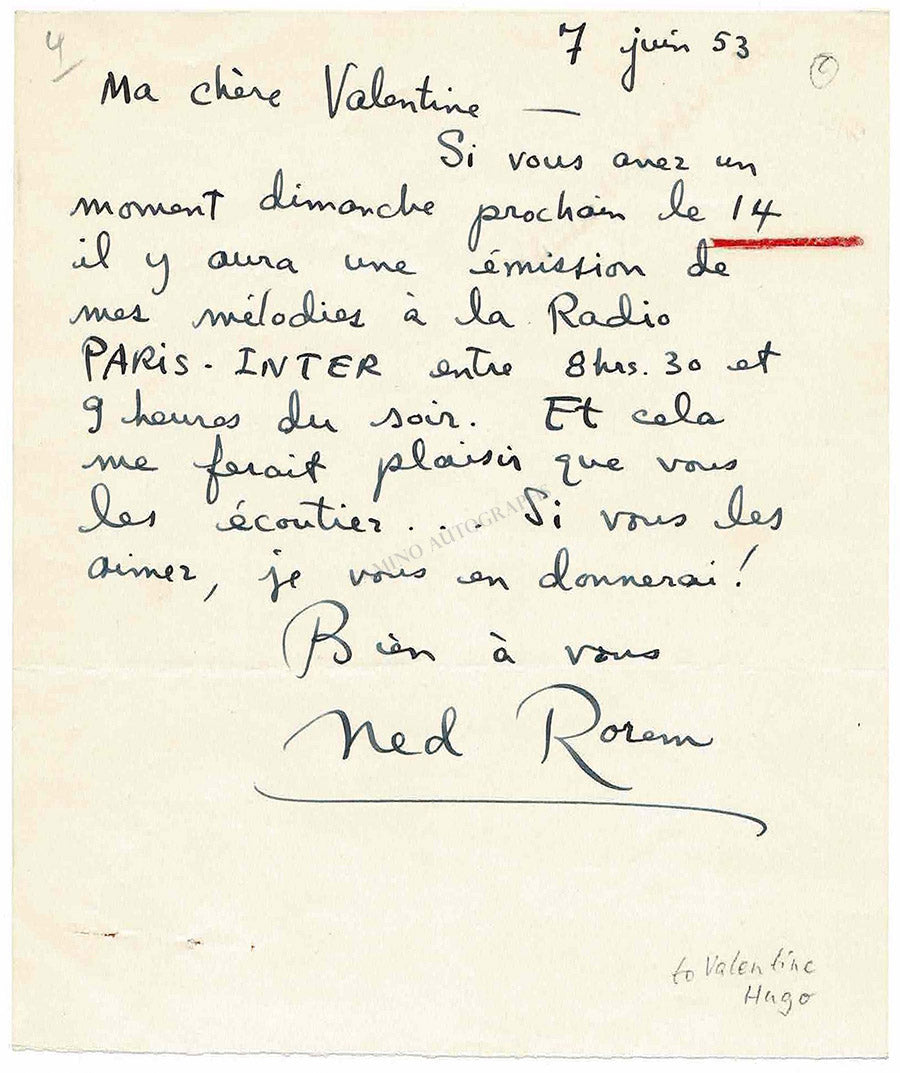 4
7 juin 53
Ma chère Valentine —
Si vous avez un
moment dimanche prochain le 14
il y aura une émission de
mes mélodies à la Radio
PARIS-INTER entre 8 hrs. 30 et
9 heures du soir. Et cela
me ferait plaisir que vous
les écoutiez... Si vous les
aimez, je vous en donnerai!
Bien à vous
Ned Rorem
to Valentine
Hugo